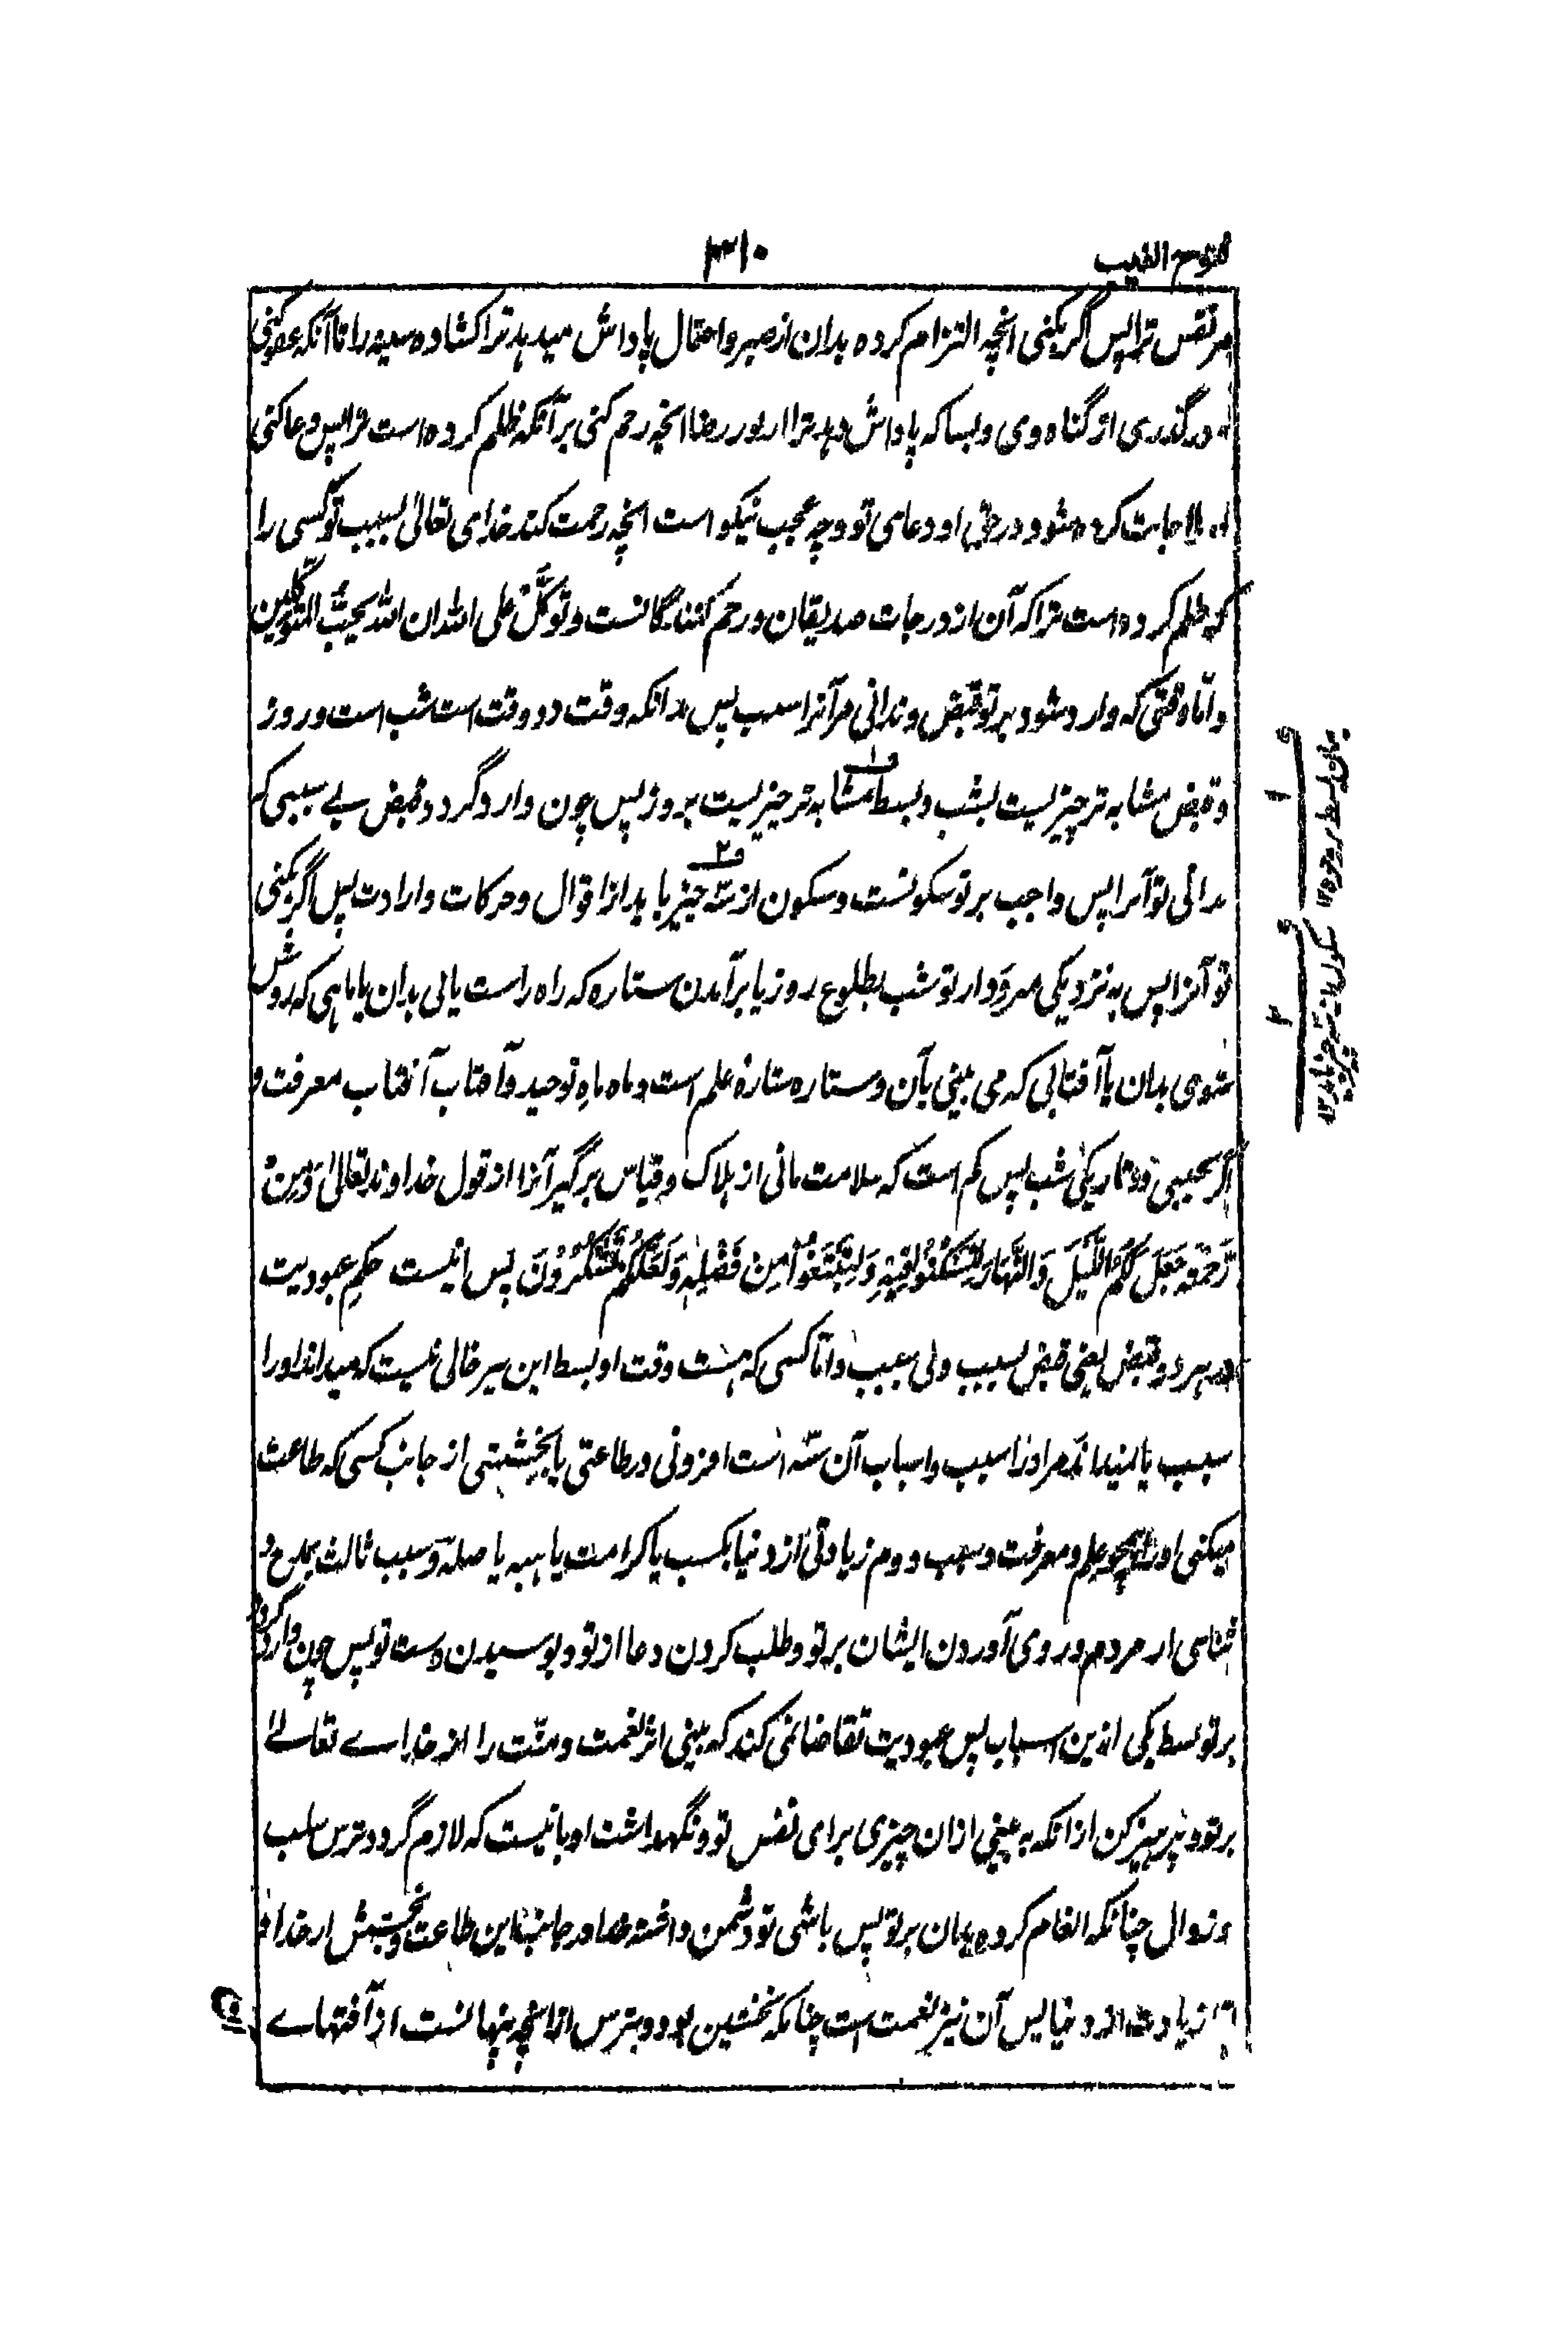 فتوح الغیب
۳۱۰
مر نفس ترا پس اگر بکنی انچه التزام کرده بدان از صبر و احتمال پاداش میدهد ترا کشاده سینه را تا آنکه عفو کنی
و در گذری از گناه وی و بسا که پاداش دهد ترا از نور رضا انچه رحم کنی بر آنکه ظلم کرده است ترا پس دعا کنی
او را اجابت کرده شود در حق او دعای تو و چه عجب نیکو است انچه رحمت کند خدای تعالیٰ بسبب تو کسی را
که ظلم کرده است ترا که آن از درجات صدیقان و رحم کنندگانست و توکّل علی الله ان الله یحبّ المتوکّلین
و امّا وقتی که وارد شود بر تو قبض و ندانی مر آنرا سبب پس بدانکه وقت دو وقت است شب است و روز
و قبض مشابه تر چیزیست بشب و بسط مشابه تر چیزیست بروز پس چون وارد گردد قبض بے سببی که
بدانی تو آنرا پس واجب بر تو سکونست و سکون از سّه چیز باید از اقوال و حرکات و ارادت پس اگر بکنی
تو آنرا پس به نزدیکی میرود از تو شب بطلوع روز یا برآمدن ستاره که راه راست یابی بدان یا ماهی که روشن
شوی بدان یا آفتابی که می بینی بآن و ستاره ستارهٔ علم است و ماه ماهِ توحید و آفتاب آفتاب معرفت و
اگر بجنبی در تاریکی شب پس کم است که سلامت مانی از هلاک و قیاس برگیر آنرا از قول خداوند تعالیٰ وَمِنْ
رَّحْمَتِهٖ جَعَلَ لَكُمُ الَّیْلَ وَالنَّهَارَ لِتَسْكُنُوْا فِیْهِ وَلِتَبْتَغُوْا مِنْ فَضْلِهٖ وَلَعَلَّكُمْ تَشْكُرُوْنَ پس اینست حکمِ عبودیت
در هر دو قبض یعنی قبض بسبب و بی سبب و امّا کسی که هست وقت او بسط این نیز خالی نیست که میداند او را
سبب یا نمیداند مر او را سبب و اسباب آن سّه است افزونی در طاعتی یا بخششی از جانب کسی که طاعت
میکنی او را همچو علم و معرفت و سبب دوم زیادتی از دنیا بکسب یا کرامت یا هبه یا صله و سبب ثالث بمدح و
ثناسی از مردم و روی آوردن ایشان بر تو و طلب کردن دعا از تو و بوسیدن دست تو پس چون وارد گردد
بر تو بسط یکی ازین اسباب پس عبودیت تقاضا می کند که بینی اثر نعمت و منّت را از خدایے تعالےٰ
بر تو و بپرهیز کن از انکه به بینی از ان چیزی برای نفس تو و نگهداشت او بانیست که لازم گردد ترس سلب
و زوال چنانکه انعام کرده بدان بر تو پس باشی تو دشمن داشته
زیادت از دنیا پس آن نیز نعمت است چنانکه نخستین بود و بترس از انچه پنهانست از آفتهاے